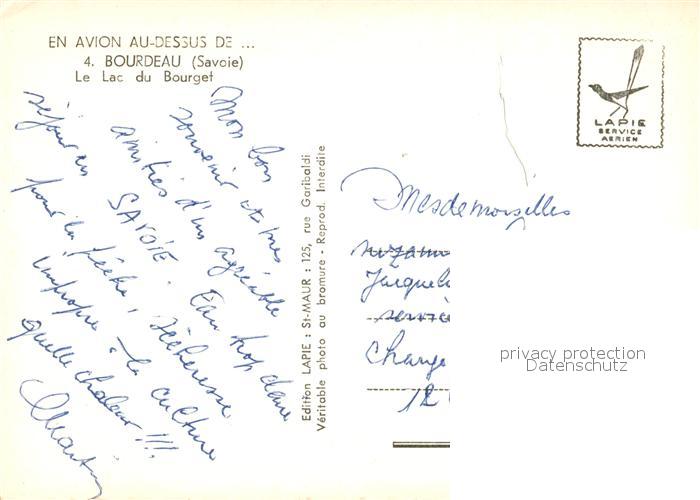 EN AVION AU-DESSUS DE ...
4. BOURDEAU (Savoie)
Le Lac du Bourget
LAPIE
SERVICE
AERIEN
Mon bon
souvenir et mes
amitiés d'un agréable
séjour en SAVOIE. Eau trop claire
pour la pêche, sécheresse
impropre à la culture
quelle chaleur !!!
Martin
Edition LAPIE : St-MAUR : 125, rue Garibaldi
Véritable photo au bromure - Reprod. Interdite
Mesdemoiselles
Suzann
Jacqueli
Change
12
privacy protection
Datenschutz